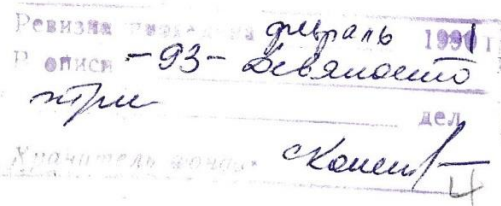 Ревизия проведена февраль 1991 г
В описи -93- Девяносто
три дел
Хранитель фонда
4